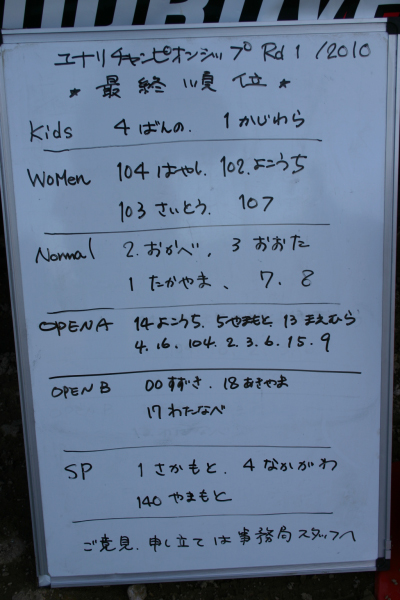 ユナリチャンピオンシップ Rd1/2010
★ 最終順位 ★
Kids 4ばんの、 1かじわら
WoMen 104はやし、102、よこうち
103さいとう、 107
Normal 2、おかべ、3 おおた
1 たかやま、 7、8
OPEN A 14よこうち、5やまもと、13まえむら
4、16、104、2、3、6、15、9
OPEN B 00すずき、18あきやま
17わたなべ
SP 1さかもと、4なかがわ
140やまもと
ご意見、申し立ては事務局スタッフへ